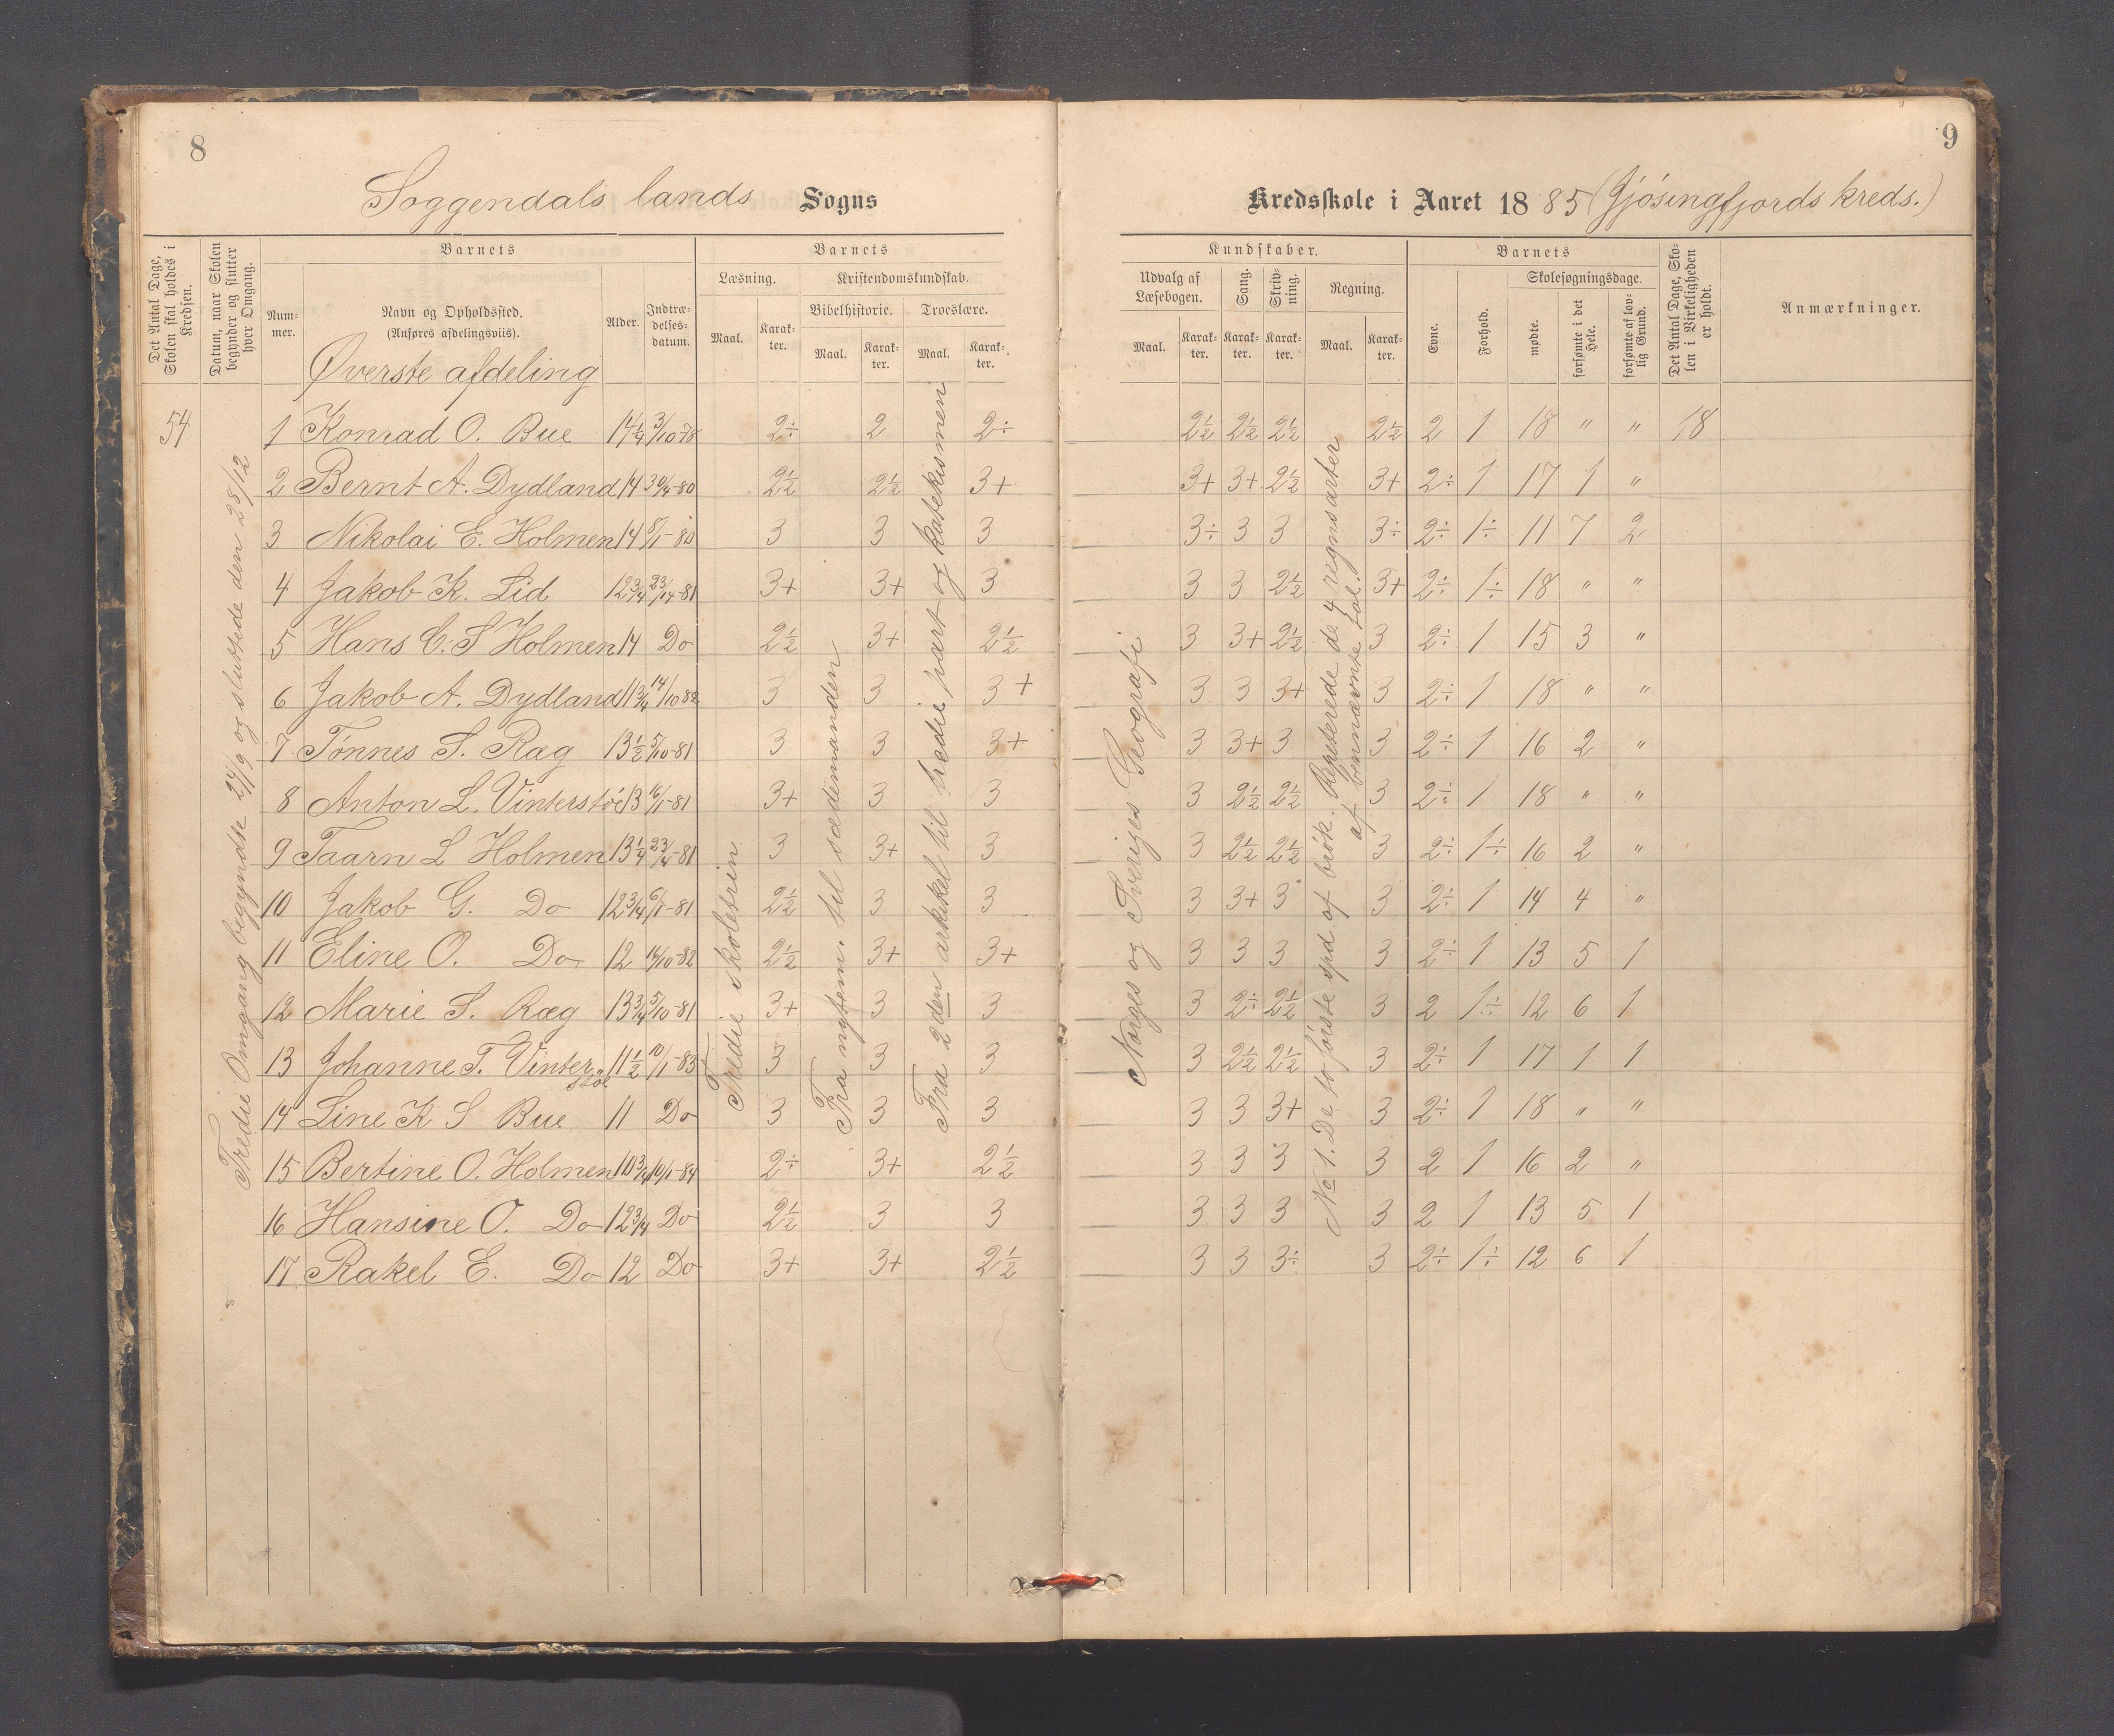 8
9
Soggendals lands Sogns Kredsskole i Aaret 1885 (Jjósingfjords kreds.)
Det Antal Dage, Skolen skal holdes i Kredsen.
Datum, naar Skolen begynder og slutter hver Omgang.
Barnets
Num-mer.
Navn og Opholdssted. (Anføres afdelingsviis).
Alder.
Indtræ-delses-datum.
Barnets
Læsning.
Kristendomskundskab.
Bibelhistorie.
Troeslære.
Maal.
Karak-ter.
Maal.
Karak-ter.
Maal.
Karak-ter.
Kundskaber.
Udvalg af Læsebogen.
Sang.
Skriv-ning.
Regning.
Maal.
Karak-ter.
Karak-ter.
Karak-ter.
Maal.
Karak-ter.
Barnets
Evne.
Forhold.
Skolesøgningsdage.
mødte.
forsømte i det Hele.
forsømte af lov-lig Grund.
Det Antal Dage, Sko-len i Virkeligheden er holdt.
Anmærkninger.
Øverste afdeling
54
Tredie Omgang begyndte 24/9 og sluttede den 28/12
Tredie skoletrin
Fra nytem. til sædemanden
Fra 2den artikel til tredie part og katekismen
Norges og Sveriges Geografi
No 1. De to første spd. af brók. Repeterede de 4 regnsarter
af bennævnte tal.
1 Konrad O. Bue 14 1/4 3/10-78 2÷ 2 2÷ 2½ 2½ 2½ 2½ 2 1 18 " " 18
2 Bernt A. Dydland 14 30/4-80 2½ 2½ 3+ 3+ 3+ 2½ 3+ 2÷ 1 17 1 "
3 Nikolai E. Holmen 14 8/1-80 3 3 3 3÷ 3 3 3÷ 2÷ 1÷ 11 7 2
4 Jakob K. Lid 12 3/4 23/14-81 3+ 3+ 3 3 3 2½ 3+ 2÷ 1÷ 18 " "
5 Hans C. S Holmen 14 Do 2½ 3+ 2½ 3 3+ 2½ 3 2÷ 1 15 3 "
6 Jakob A. Dydland 11 3/4 14/10 82 3 3 3+ 3 3 3+ 3 2÷ 1 18 " "
7 Tónnes S. Rag 13½ 5/10-81 3 3 3+ 3 3+ 3 3 2÷ 1 16 2 "
8 Anton L. Vinterstóe 13 6/1-81 3+ 3 3 3 2½ 2½ 3 2÷ 1 18 " "
9 Taarn L Holmen 13 1/4 23/4-81 3 3+ 3 3 2½ 2½ 3 2÷ 1÷ 16 2 "
10 Jakob G. Do 12 3/4 6/1-81 2½ 3 3 3 3+ 3 3 2÷ 1 14 4 "
11 Eline O. Do 12 14/10-82 2½ 3+ 3+ 3 3 3 3 2÷ 1 13 5 1
12 Marie S. Ræg 13 3/4 5/10-81 3+ 3 3 3 2÷ 2½ 3 2 1÷ 12 6 1
13 Johanne T. Vinterstøe 11½ 10/1-83 3 3 3 3 2½ 2½ 3 2÷ 1 17 1 1
14 Line K S Bue 11 Do 3 3 3 3 3 3+ 3 2÷ 1 18 " "
15 Bertine O. Holmen 10 3/4 10/1-84 2÷ 3+ 2½ 3 3 3 3 2 1 16 2 "
16 Hansine O. Do 12 3/4 Do 2½ 3 3 3 3 3 3 2 1 13 5 1
17 Rakel E. Do 12 Do 3+ 3+ 2½ 3 3 3÷ 3 2÷ 1÷ 12 6 1